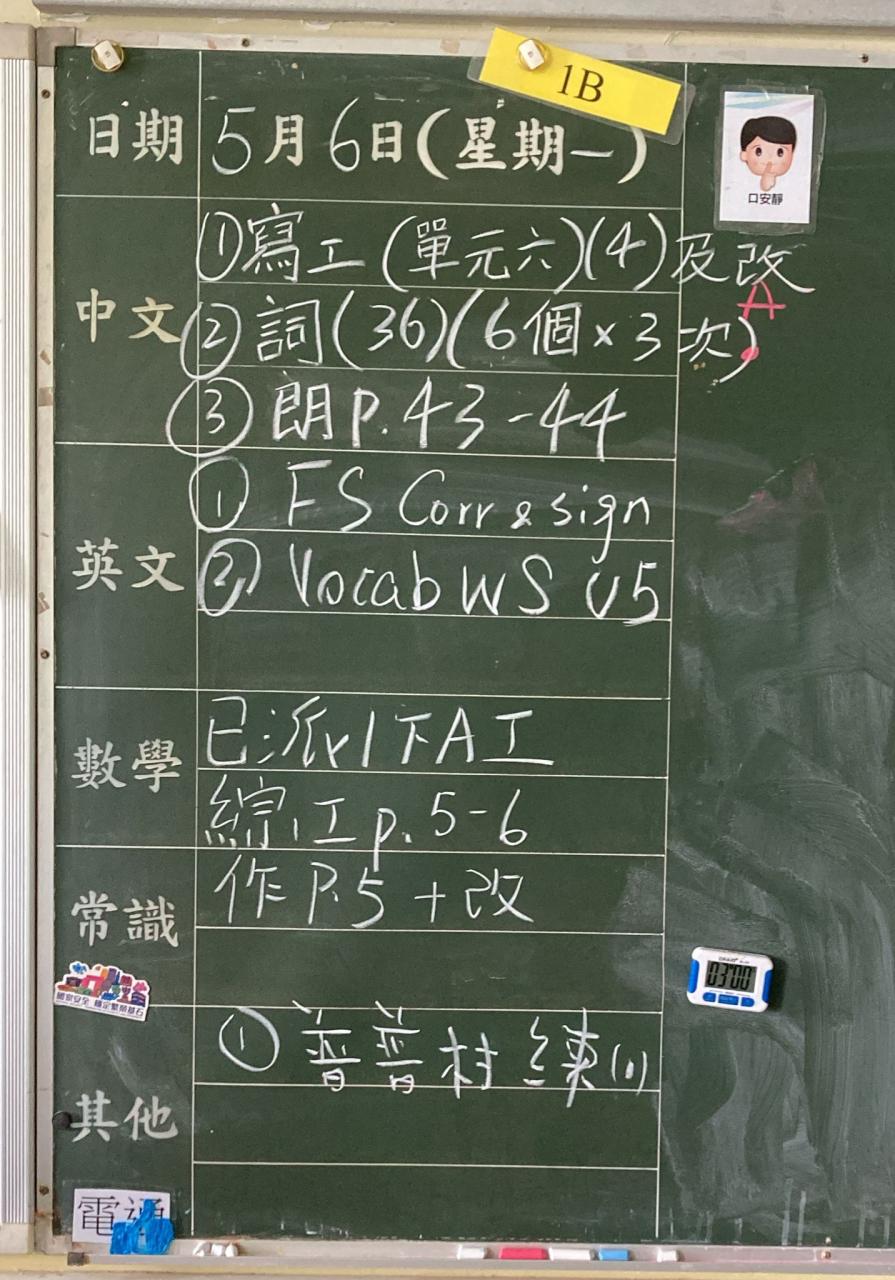 1B
日期 5月6日(星期一)
口安靜
中文 ①寫工(單元六)(4)及改
A
②詞(36)(6個×3次)
③朗P.43-44
英文 ① FS Corr & sign
② Vocab WS U5
數學 已派1下A工
綜工p.5-6
常識 作P.5+改
03:00
國家安全 穩定繁榮基石
其他 ①普普村練(1)
電